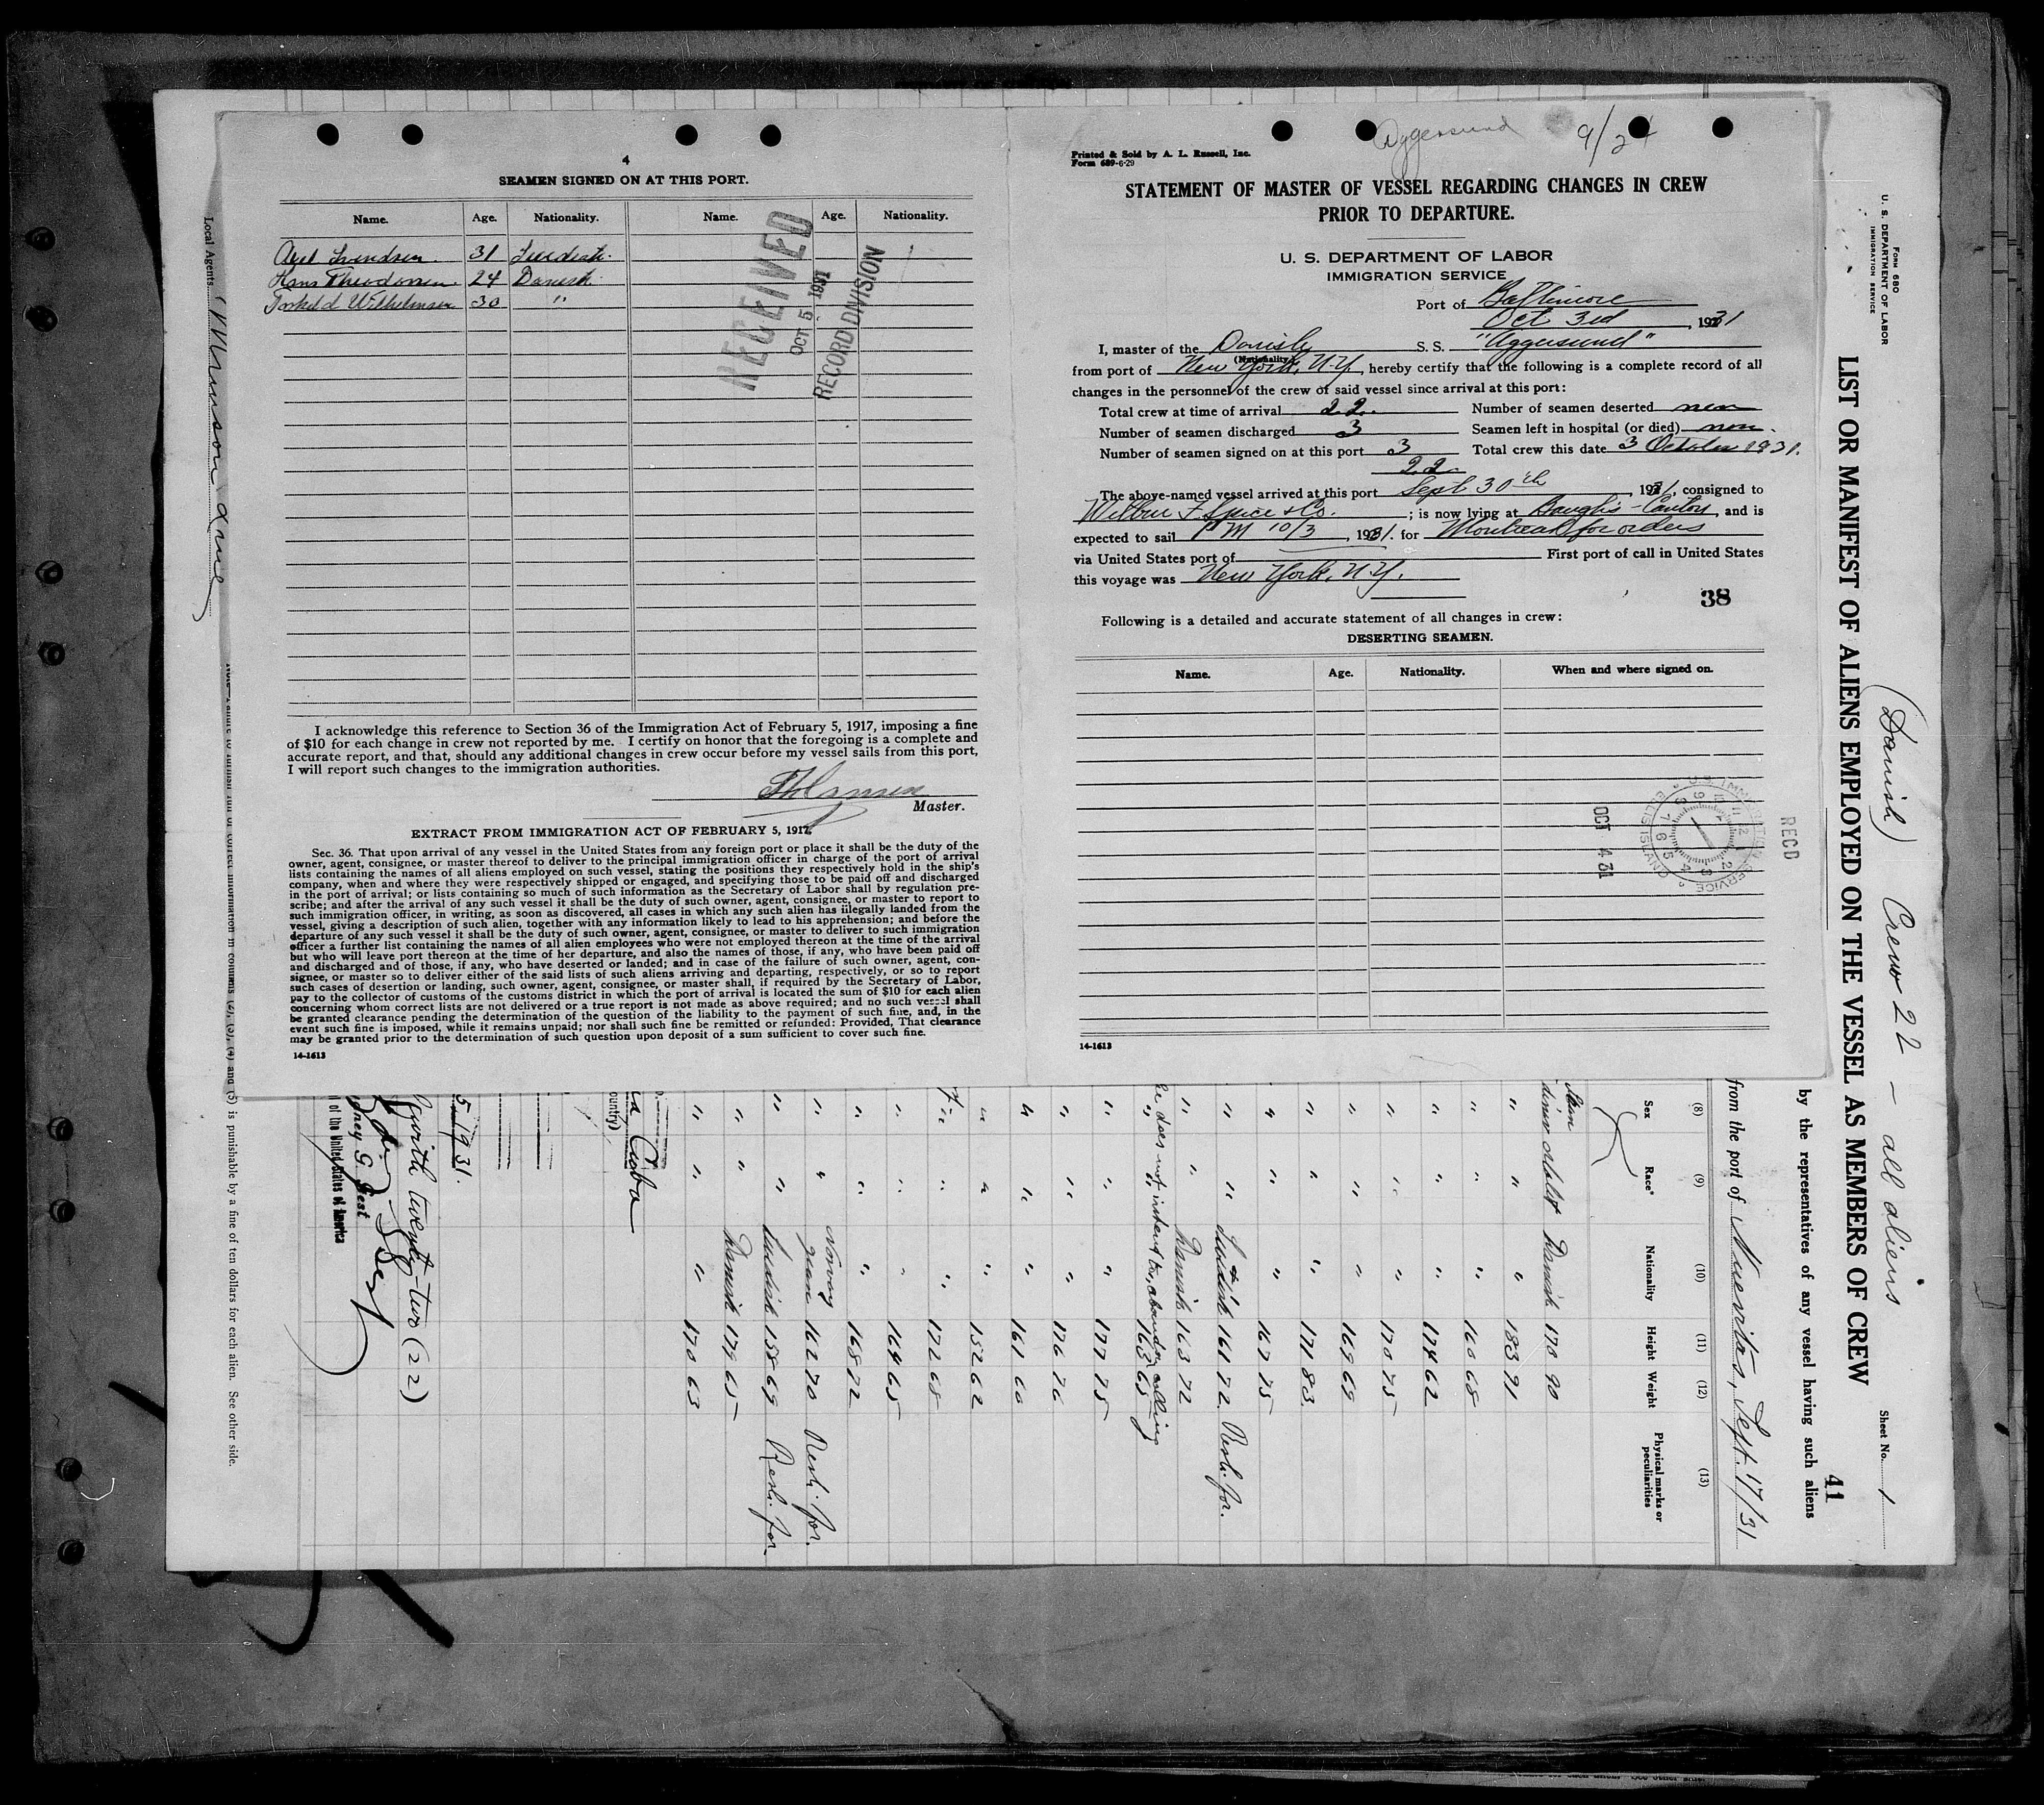 4
SEAMEN SIGNED ON AT THIS PORT.
Name. Age. Nationality. Name. Age. Nationality.
Axel Svendsen. 31 Swedish.
Hans Theodorsen. 24 Danish.
Torkild Wilhelmsen 30 "
RECEIVED
OCT 5 1931
RECORD DIVISION
I acknowledge this reference to Section 36 of the Immigration Act of February 5, 1917, imposing a fine
of $10 for each change in crew not reported by me. I certify on honor that the foregoing is a complete and
accurate report, and that, should any additional changes in crew occur before my vessel sails from this port,
I will report such changes to the immigration authorities.
Master.
EXTRACT FROM IMMIGRATION ACT OF FEBRUARY 5, 1917.
Sec. 36. That upon arrival of any vessel in the United States from any foreign port or place it shall be the duty of the
owner, agent, consignee, or master thereof to deliver to the principal immigration officer in charge of the port of arrival
lists containing the names of all aliens employed on such vessel, stating the positions they respectively hold in the ship's
company, when and where they were respectively shipped or engaged, and specifying those to be paid off and discharged
in the port of arrival; or lists containing so much of such information as the Secretary of Labor shall by regulation pre-
scribe; and after the arrival of any such vessel it shall be the duty of such owner, agent, consignee, or master to report to
such immigration officer, in writing, as soon as discovered, all cases in which any such alien has illegally landed from the
vessel, giving a description of such alien, together with any information likely to lead to his apprehension; and before the
departure of any such vessel it shall be the duty of such owner, agent, consignee, or master to deliver to such immigration
officer a further list containing the names of all alien employees who were not employed thereon at the time of the arrival
but who will leave port thereon at the time of her departure, and also the names of those, if any, who have been paid off
and discharged and of those, if any, who have deserted or landed; and in case of the failure of such owner, agent, con-
signee, or master so to deliver either of the said lists of such aliens arriving and departing, respectively, or so to report
such cases of desertion or landing, such owner, agent, consignee, or master shall, if required by the Secretary of Labor,
pay to the collector of customs of the customs district in which the port of arrival is located the sum of $10 for each alien
concerning whom correct lists are not delivered or a true report is not made as above required; and no such vessel shall
be granted clearance pending the determination of the question of the liability to the payment of such fine, and, in the
event such fine is imposed, while it remains unpaid; nor shall such fine be remitted or refunded: Provided, That clearance
may be granted prior to the determination of such question upon deposit of a sum sufficient to cover such fine.
14-1613
Aggersund 9/24
Printed & Sold by A. L. Russell, Inc.
Form 689-6-29
STATEMENT OF MASTER OF VESSEL REGARDING CHANGES IN CREW
PRIOR TO DEPARTURE.
U. S. DEPARTMENT OF LABOR
IMMIGRATION SERVICE
Port of Baltimore
Oct 3rd, 1931
I, master of the Danish S. S. "Aggersund"
(Nationality)
from port of New York, N.Y., hereby certify that the following is a complete record of all
changes in the personnel of the crew of said vessel since arrival at this port:
Total crew at time of arrival 22. Number of seamen deserted non
Number of seamen discharged 3 Seamen left in hospital (or died) non.
Number of seamen signed on at this port 3 Total crew this date 3 October 1931.
22
The above-named vessel arrived at this port Sept 30th, 1931, consigned to
Wilbur F. Spice & Co.; is now lying at Baughs - Canton, and is
expected to sail PM 10/3, 1931. for Montreal for orders
via United States port of First port of call in United States
this voyage was New York, N.Y.
38
Following is a detailed and accurate statement of all changes in crew:
DESERTING SEAMEN.
Name. Age. Nationality. When and where signed on.
RECD
OCT 4 31
IMMIGRATION SERVICE
ELLIS ISLAND
14-1613
Form 680
U. S. DEPARTMENT OF LABOR
IMMIGRATION SERVICE
(Danish) Crew 22 - all aliens
Sheet No. 1
LIST OR MANIFEST OF ALIENS EMPLOYED ON THE VESSEL AS MEMBERS OF CREW
41
by the representatives of any vessel having such aliens
from the port of Nuevitas, Sept. 17/31
(8) (9) (10) (11) (12) (13)
Sex Race* Nationality Height Weight Physical marks or peculiarities
Danish 170 90
" " 183 91
" " " 160 68
" " " 174 62
" " " 170 75
" " " 169 69
" " " 171 83
" " " 167 75
" " Swedish 161 72
" " Danish 163 72
163 65
" " " 177 75
" " " 176 76
" " " 161 60
" " " 152 62
" " " 172 68
" " " 164 65
" " " 168 72
" " Norwegian 162 70
" " Swedish 158 69
" " Danish 179 65
" " " 170 63
Cuba
ountry)
5 1931.
with twenty-two (22)
dney G. Gest
of the United States of America
(3), (4) and (5) is punishable by a fine of ten dollars for each alien. See other side.
Local Agents Munson Line